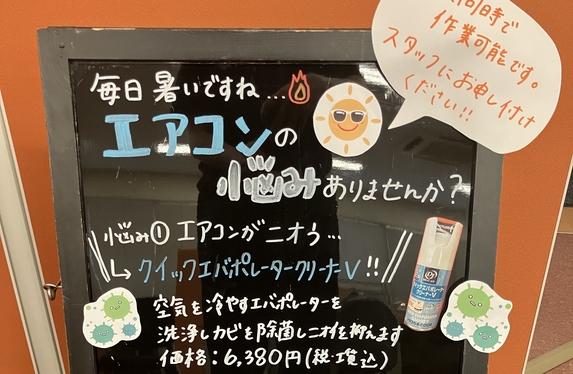 同時で
作業可能です。
スタッフにお申し付け
ください!!
毎日暑いですね...
エアコンの
悩みありませんか?
悩み① エアコンがニオう...
クイックエバポレータークリーナーV!!
空気を冷やすエバポレーターを
洗浄しカビを除菌しニオイを抑えます
価格:6,380円(税・工賃込)
クイックエバポレーター
クリーナーV